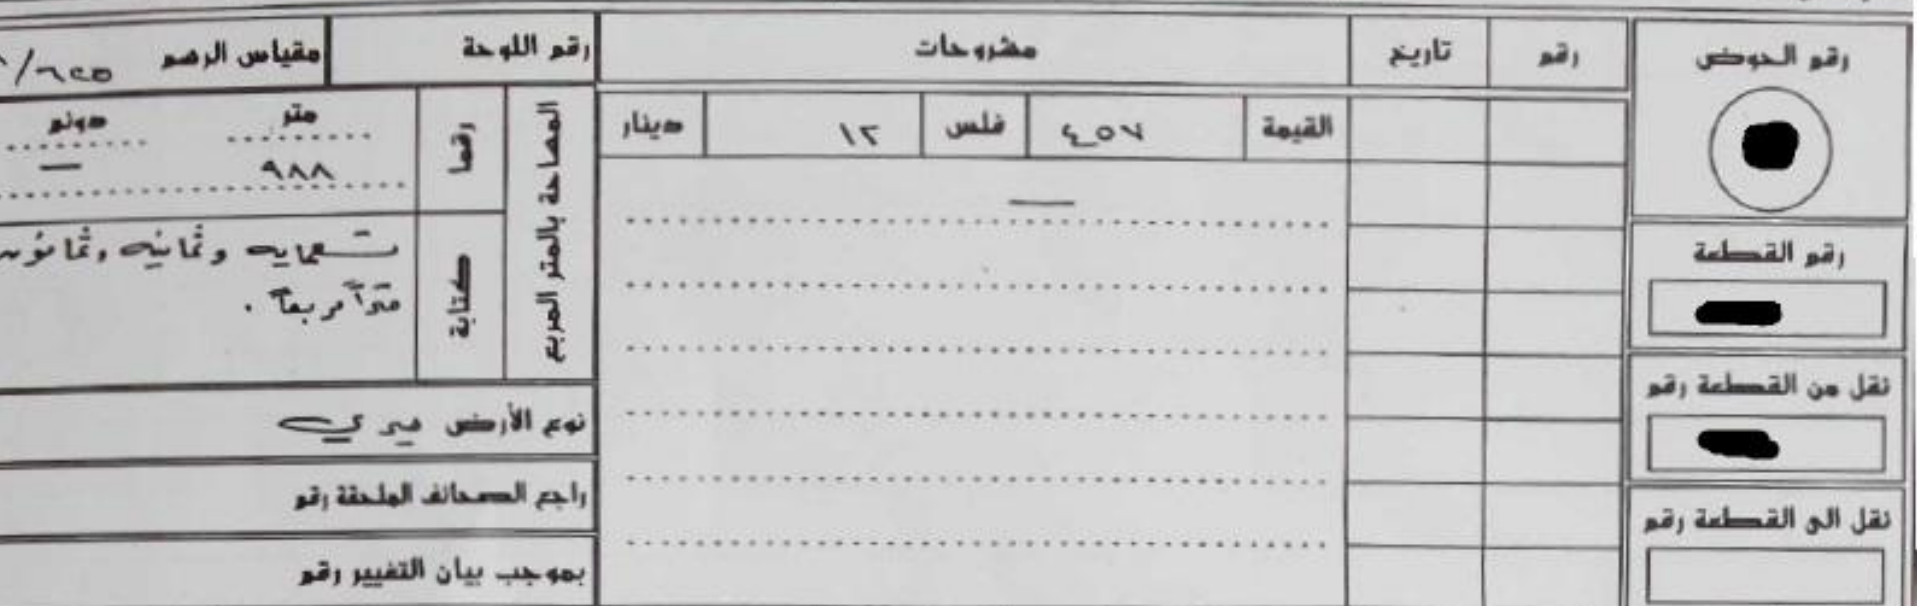 رقم الحوض
رقم القطعة
نقل من القطعة رقم
نقل الى القطعة رقم
رقم تاريخ مشروحات
القيمة ٤٥٧ فلس ١٢ دينار
رقم اللوحة مقياس الرسم ١/٦٢٥
المساحة بالمتر المربع
رقما
متر دونم
٩٨٨ —
كتابة
تسعمايه وثمانيه وثمانون
متراً مربعاً .
نوع الأرض ميري
راجع الصحائف الملحقة رقم
بموجب بيان التغيير رقم